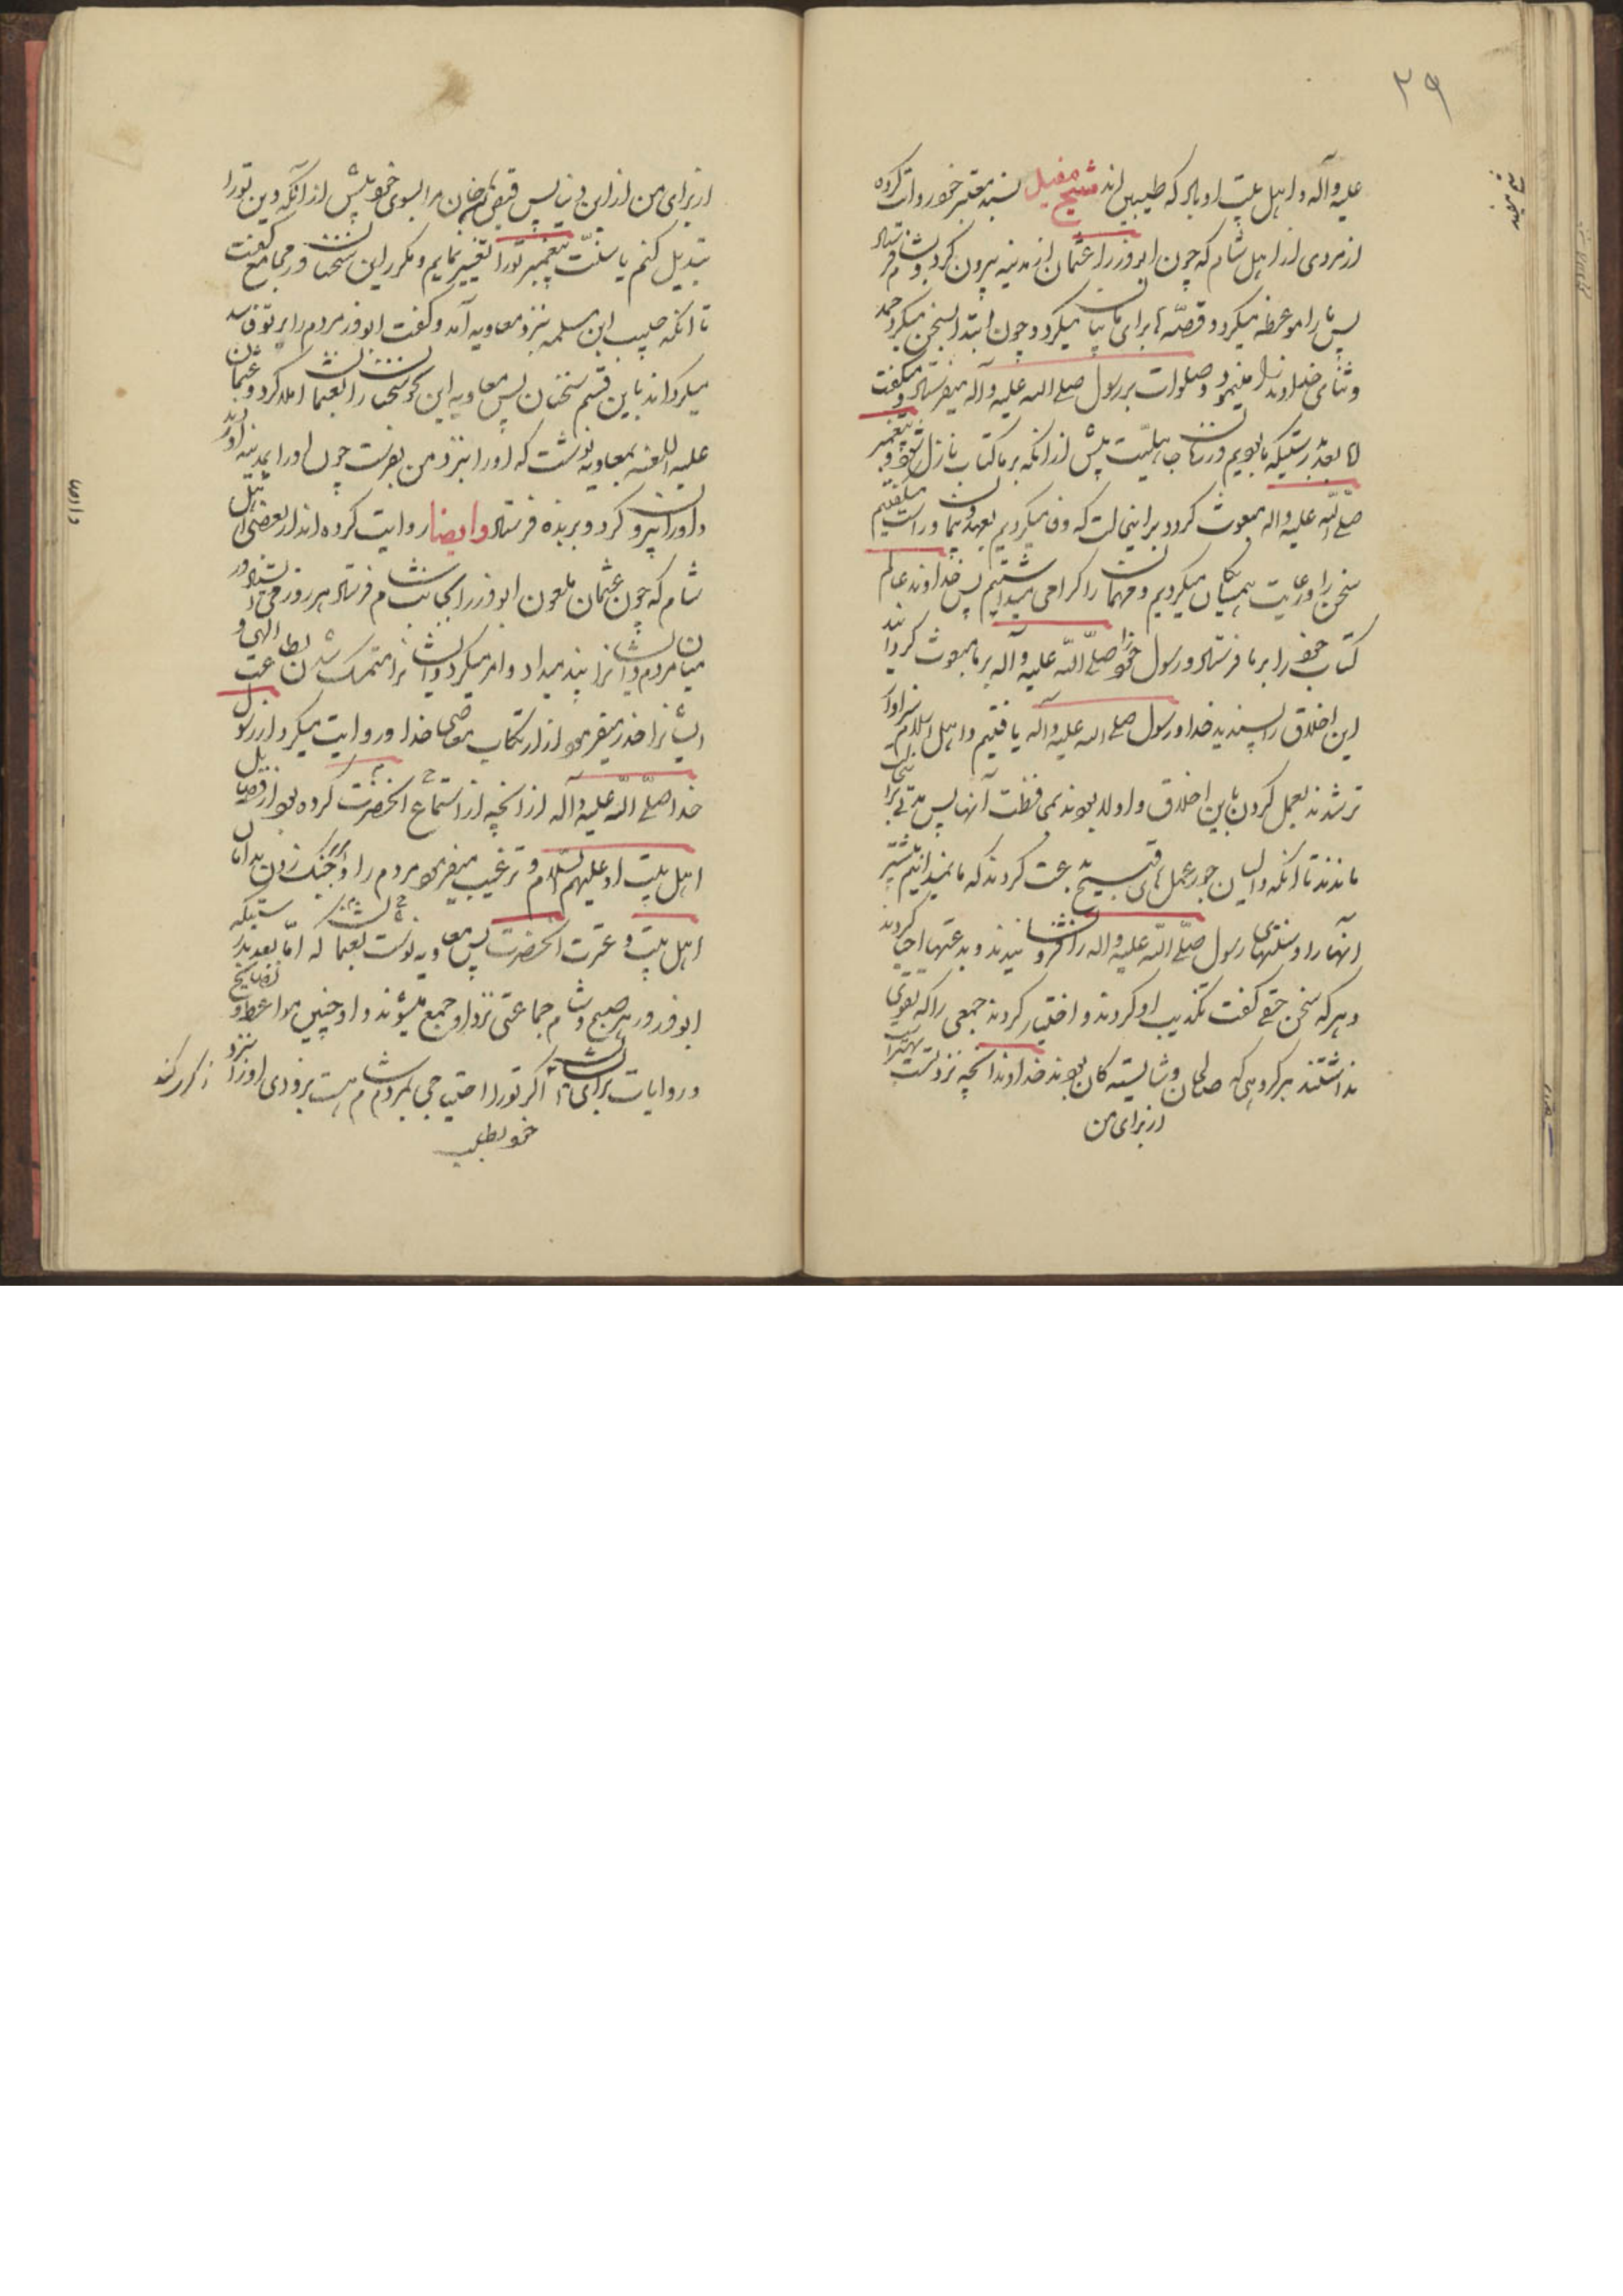 ۲۹
علیه وآله و اهل بیت او باد که طیبین اند شیخ مفید بسند معتبر خود روایت کرده
از مردی از اهل شام که چون ابوذر را عثمان از مدینه بیرون کرد و بشام فرستاد
پس ما را موعظه میکرد و قصّه ها برای ما بیان میکرد و چون ابتدا بسخن میکرد حمد
و ثنای خداوند را مینمود و صلوات بر رسول صلی الله علیه وآله میفرستاد و میگفت
امّا بعد بدرستیکه ما بودیم در زمان جاهلیّت پیش از آنکه بر ما کتاب نازل شود و پیغمبر
صلّی الله علیه واله مبعوث گردد بر این حالت که وفا میکردیم بعهد و پیمان و راست میگفتیم
سخن را و رعایت همسایگان میکردیم و مهمان را گرامی میداشتیم پس خداوند عالم
کتاب خود را بر ما فرستاد و رسول خود را صلّی الله علیه وآله بر ما مبعوث گردانید
این اخلاق را پسندید خدا و رسول صلی الله علیه واله یافتیم و اهل اسلام سزاوار
تر شدند بعمل کردن باین اخلاق و اولی بودند بمحافظت آنها پس مدّتی بر این حالت
ماندند تا آنکه والیان جور عمل های قبیح بدعت کردند که ما نمیدانستیم پیشتر
آنها را و سنّتهای رسول صلّی الله علیه واله را فرونشانیدند و بدعتها احیا کردند
و هر که سخن حقّی گفت تکذیب او کردند و اختیار کردند جمعی را که تقوی
نداشتند بر گروهی که صالحان و شایسته گان بودند خداوندا آنچه نزد تست بهتر است
از برای من
شیخ مفید
از برای من از این دنیا پس قبض کن جان مرا بسوی خود پیش از آنکه دین تو را
تبدیل کنم یا سنّت پیغمبر تو را تغییر نمایم و مکرر این سخنان در مجامع میگفت
تا آنکه حبیب ابن مسلمه بنزد معاویه آمد و گفت ابوذر مردم را بر تو فاسد
میگرداند باین قسم سخنان پس معاویه این سخنان را بعثمان املا کرد و عثمان
علیه اللعنه بمعاویه نوشت که او را بنزد من بفرست چون او را بمدینه آوردند
او را بیرون کرد و بربذه فرستاد وایضا روایت کرده اند از بعضی از اهل
شام که چون عثمان ملعون ابوذر را بجانب شام فرستاد هر روز می ایستاد در
میان مردم و ایشانرا پند میداد و امر میکرد ایشانرا بمتمسک شدن بطاعت الهی و
ایشانرا حذر میفرمود از ارتکاب معاصی خدا و روایت میکرد از رسول
خدا صلّی الله علیه وآله از آنچه از استماع آنحضرت کرده بود از فضایل
اهل بیت او علیهم السّلام و ترغیب میفرمود مردم را در چنگ زدن بدامان
اهل بیت و عترت آنحضرت پس معاویه نوشت بعثمان که امّا بعد بدرستیکه
ابوذر در هر صبح و شام جماعتی نزد او جمع میشوند و او چنین مواعظ و نصایح
و روایات برای ایشان ذکر میکند اگر تو را احتیاجی بمردم شام هست بزودی او را بنزد
خود بطلب
وایضا